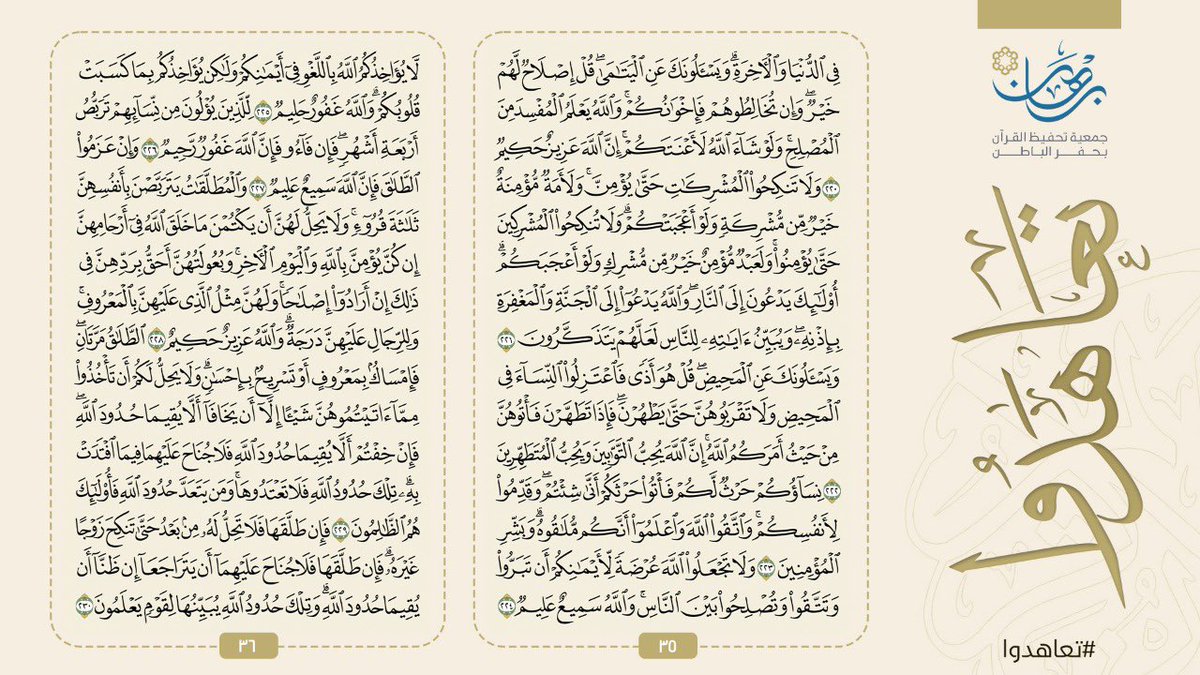 برهان
جمعية تحفيظ القرآن
بحفر الباطن
تعاهدوا
#تعاهدوا
فِي ٱلدُّنۡيَا وَٱلۡأٓخِرَةِۗ وَيَسۡـَٔلُونَكَ عَنِ ٱلۡيَتَٰمَىٰۖ قُلۡ إِصۡلَاحٞ لَّهُمۡ
خَيۡرٞۖ وَإِن تُخَالِطُوهُمۡ فَإِخۡوَٰنُكُمۡۚ وَٱللَّهُ يَعۡلَمُ ٱلۡمُفۡسِدَ مِنَ
ٱلۡمُصۡلِحِۚ وَلَوۡ شَآءَ ٱللَّهُ لَأَعۡنَتَكُمۡۚ إِنَّ ٱللَّهَ عَزِيزٌ حَكِيمٞ
٢٢٠ وَلَا تَنكِحُواْ ٱلۡمُشۡرِكَٰتِ حَتَّىٰ يُؤۡمِنَّۚ وَلَأَمَةٞ مُّؤۡمِنَةٌ
خَيۡرٞ مِّن مُّشۡرِكَةٖ وَلَوۡ أَعۡجَبَتۡكُمۡۗ وَلَا تُنكِحُواْ ٱلۡمُشۡرِكِينَ
حَتَّىٰ يُؤۡمِنُواْۚ وَلَعَبۡدٞ مُّؤۡمِنٌ خَيۡرٞ مِّن مُّشۡرِكٖ وَلَوۡ أَعۡجَبَكُمۡۗ
أُوْلَٰٓئِكَ يَدۡعُونَ إِلَى ٱلنَّارِۖ وَٱللَّهُ يَدۡعُوٓاْ إِلَى ٱلۡجَنَّةِ وَٱلۡمَغۡفِرَةِ
بِإِذۡنِهِۦۖ وَيُبَيِّنُ ءَايَٰتِهِۦ لِلنَّاسِ لَعَلَّهُمۡ يَتَذَكَّرُونَ ٢٢١
وَيَسۡـَٔلُونَكَ عَنِ ٱلۡمَحِيضِۖ قُلۡ هُوَ أَذٗى فَٱعۡتَزِلُواْ ٱلنِّسَآءَ فِي
ٱلۡمَحِيضِ وَلَا تَقۡرَبُوهُنَّ حَتَّىٰ يَطۡهُرۡنَۖ فَإِذَا تَطَهَّرۡنَ فَأۡتُوهُنَّ
مِنۡ حَيۡثُ أَمَرَكُمُ ٱللَّهُۚ إِنَّ ٱللَّهَ يُحِبُّ ٱلتَّوَّٰبِينَ وَيُحِبُّ ٱلۡمُتَطَهِّرِينَ
٢٢٢ نِسَآؤُكُمۡ حَرۡثٞ لَّكُمۡ فَأۡتُواْ حَرۡثَكُمۡ أَنَّىٰ شِئۡتُمۡۖ وَقَدِّمُواْ
لِأَنفُسِكُمۡۚ وَٱتَّقُواْ ٱللَّهَ وَٱعۡلَمُوٓاْ أَنَّكُم مُّلَٰقُوهُۗ وَبَشِّرِ
ٱلۡمُؤۡمِنِينَ ٢٢٣ وَلَا تَجۡعَلُواْ ٱللَّهَ عُرۡضَةٗ لِّأَيۡمَٰنِكُمۡ أَن تَبَرُّواْ
وَتَتَّقُواْ وَتُصۡلِحُواْ بَيۡنَ ٱلنَّاسِۚ وَٱللَّهُ سَمِيعٌ عَلِيمٞ ٢٢٤
٣٥
لَّا يُؤَاخِذُكُمُ ٱللَّهُ بِٱللَّغۡوِ فِيٓ أَيۡمَٰنِكُمۡ وَلَٰكِن يُؤَاخِذُكُم بِمَا كَسَبَتۡ
قُلُوبُكُمۡۗ وَٱللَّهُ غَفُورٌ حَلِيمٞ ٢٢٥ لِّلَّذِينَ يُؤۡلُونَ مِن نِّسَآئِهِمۡ تَرَبُّصُ
أَرۡبَعَةِ أَشۡهُرٖۖ فَإِن فَآءُو فَإِنَّ ٱللَّهَ غَفُورٞ رَّحِيمٞ ٢٢٦ وَإِنۡ عَزَمُواْ
ٱلطَّلَٰقَ فَإِنَّ ٱللَّهَ سَمِيعٌ عَلِيمٞ ٢٢٧ وَٱلۡمُطَلَّقَٰتُ يَتَرَبَّصۡنَ بِأَنفُسِهِنَّ
ثَلَٰثَةَ قُرُوٓءٖۚ وَلَا يَحِلُّ لَهُنَّ أَن يَكۡتُمۡنَ مَا خَلَقَ ٱللَّهُ فِيٓ أَرۡحَامِهِنَّ
إِن كُنَّ يُؤۡمِنَّ بِٱللَّهِ وَٱلۡيَوۡمِ ٱلۡأٓخِرِۚ وَبُعُولَتُهُنَّ أَحَقُّ بِرَدِّهِنَّ فِي
ذَٰلِكَ إِنۡ أَرَادُوٓاْ إِصۡلَٰحٗاۚ وَلَهُنَّ مِثۡلُ ٱلَّذِي عَلَيۡهِنَّ بِٱلۡمَعۡرُوفِۚ
وَلِلرِّجَالِ عَلَيۡهِنَّ دَرَجَةٞۗ وَٱللَّهُ عَزِيزٌ حَكِيمٌ ٢٢٨ ٱلطَّلَٰقُ مَرَّتَانِۖ
فَإِمۡسَاكُۢ بِمَعۡرُوفٍ أَوۡ تَسۡرِيحُۢ بِإِحۡسَٰنٖۗ وَلَا يَحِلُّ لَكُمۡ أَن تَأۡخُذُواْ
مِمَّآ ءَاتَيۡتُمُوهُنَّ شَيۡـًٔا إِلَّآ أَن يَخَافَآ أَلَّا يُقِيمَا حُدُودَ ٱللَّهِۖ
فَإِنۡ خِفۡتُمۡ أَلَّا يُقِيمَا حُدُودَ ٱللَّهِ فَلَا جُنَاحَ عَلَيۡهِمَا فِيمَا ٱفۡتَدَتۡ
بِهِۦۗ تِلۡكَ حُدُودُ ٱللَّهِ فَلَا تَعۡتَدُوهَاۚ وَمَن يَتَعَدَّ حُدُودَ ٱللَّهِ فَأُوْلَٰٓئِكَ
هُمُ ٱلظَّٰلِمُونَ ٢٢٩ فَإِن طَلَّقَهَا فَلَا تَحِلُّ لَهُۥ مِنۢ بَعۡدُ حَتَّىٰ تَنكِحَ زَوۡجًا
غَيۡرَهُۥۗ فَإِن طَلَّقَهَا فَلَا جُنَاحَ عَلَيۡهِمَآ أَن يَتَرَاجَعَآ إِن ظَنَّآ أَن
يُقِيمَا حُدُودَ ٱللَّهِۗ وَتِلۡكَ حُدُودُ ٱللَّهِ يُبَيِّنُهَا لِقَوۡمٖ يَعۡلَمُونَ ٢٣٠
٣٦